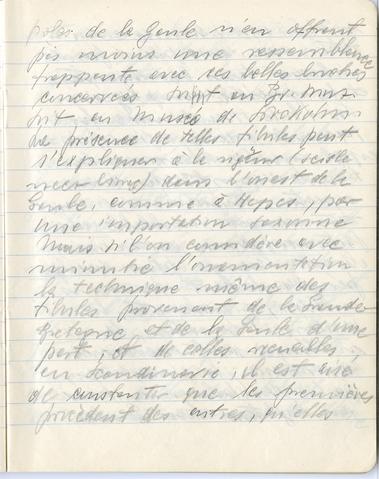 de la Gaule n'en offrent
pas moins une ressemblance
frappante avec ces belles broches
conservées soit au Br. Mus.
soit au Musée de Stockolm
La présence de telles fibules peut
s'expliquer à la rigueur (
) dans l'ouest de la
Gaule, comme à Herpes, par
une importation saxonne
Mais si l'on considère avec
minutie l'ornementation
la technique même des
fibules provenant de la Grande
Bretagne et de la Gaule d'une
part, et de celles recueillies
en Scandinavie, il est aisé
de constater que les premières
procèdent des autres, qu'elles